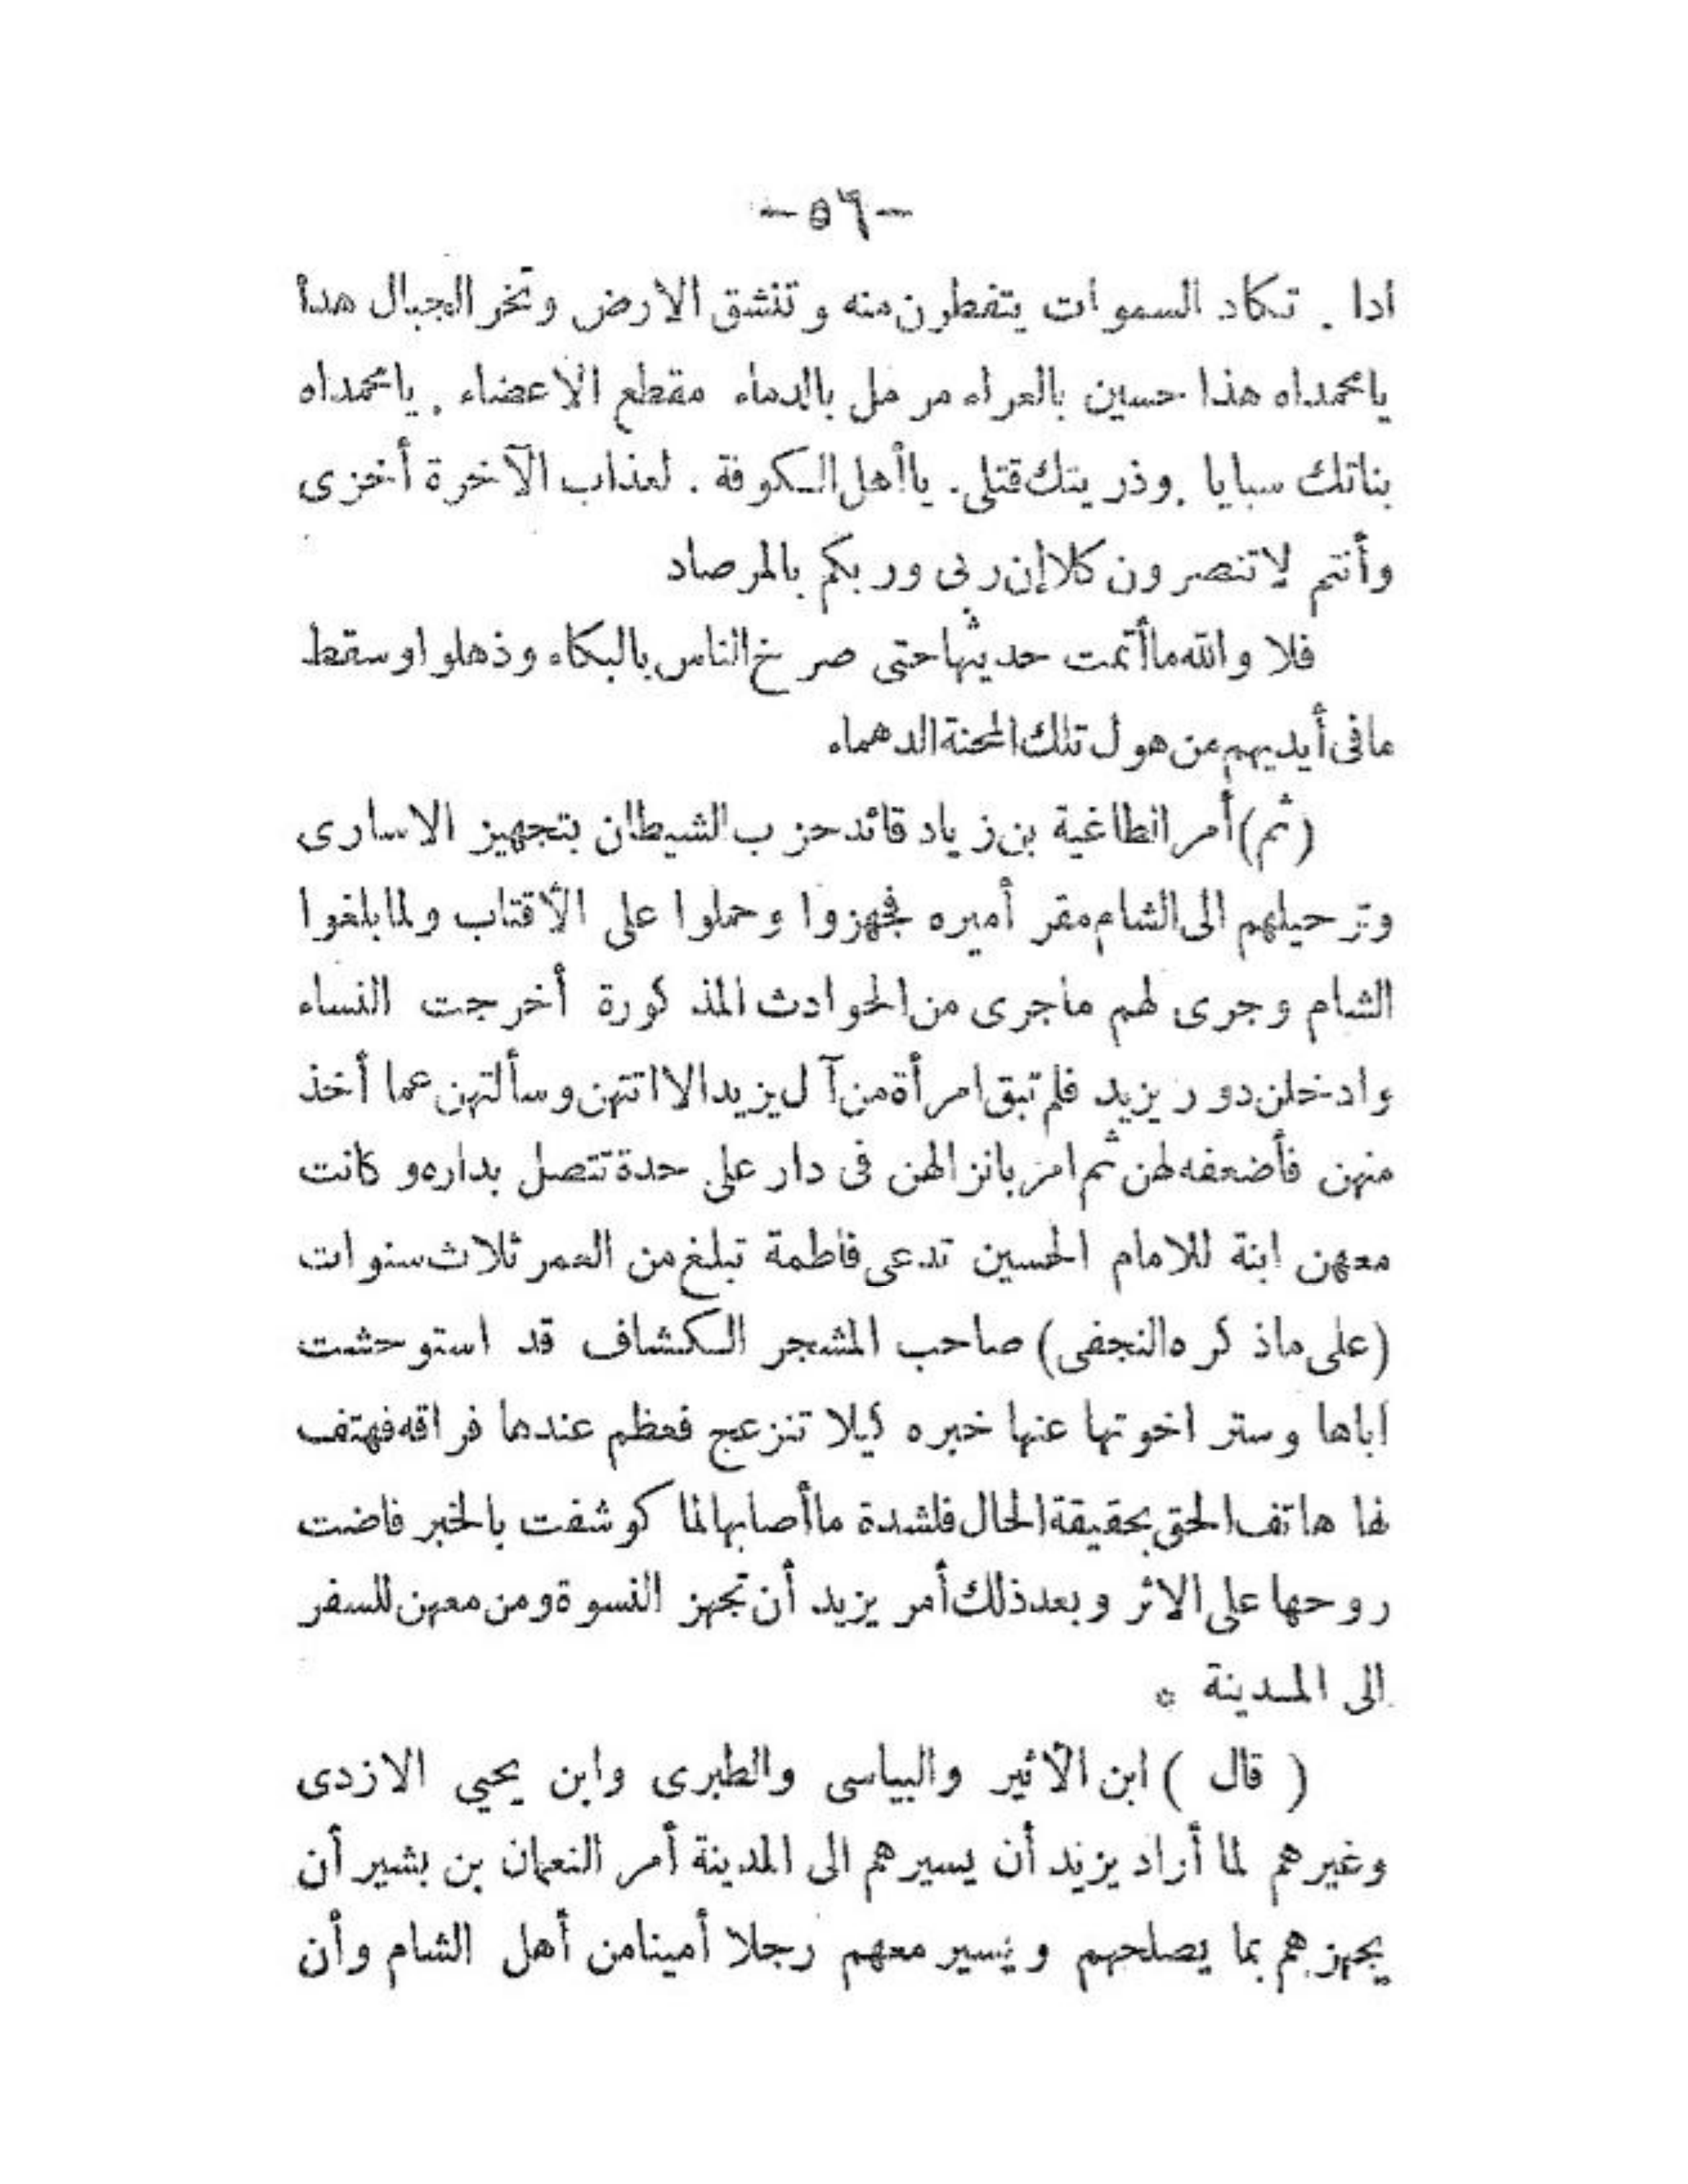 -٥٦-
ادا . تكاد السموات يتفطرن منه وتنشق الارض وتخر الجبال هدا
يامحمداه هذا حسين بالعراء مرمل بالدماء مقطع الاعضاء . يامحمداه
بناتك سبايا . وذريتك قتلى . يا أهل الكوفة . لعذاب الآخرة أخزى
وأنتم لاتنصرون كلا إن ربى وربكم بالمرصاد
فلا والله ماأتمت حديثها حتى صرخ الناس بالبكاء وذهلوا وسقط
مافى أيديهم من هول تلك المحنة الدهماء
(ثم) أمر الطاغية بن زياد قائد حزب الشيطان بتجهيز الاسارى
وترحيلهم الى الشام مقر أميره فجهزوا وحملوا على الأقتاب ولما بلغوا
الشام وجرى لهم ماجرى من الحوادث المذكورة أخرجت النساء
وادخلن دور يزيد فلم تبق امرأة من آل يزيد الا اتتهن وسألتهن عما أخذ
منهن فأضعفه لهن ثم امر بانزالهن فى دار على حدة تتصل بداره وكانت
معهن ابنة للامام الحسين تدعى فاطمة تبلغ من العمر ثلاث سنوات
(على ماذكره النجفى) صاحب المشجر الكشاف قد استوحشت
اباها وستر اخوتها عنها خبره كيلا تنزعج فعظم عندها فراقه فهتف
لها هاتف الحق بحقيقة الحال فلشدة ماأصابها لما كوشفت بالخبر فاضت
روحها على الاثر وبعد ذلك أمر يزيد أن تجهز النسوة ومن معهن للسفر
الى المدينة *
( قال ) ابن الأثير والبياسى والطبرى وابن يحيي الازدى
وغيرهم لما أراد يزيد أن يسيرهم الى المدينة أمر النعمان بن بشير أن
يجهزهم بما يصلحهم ويسير معهم رجلا أمينا من أهل الشام وأن